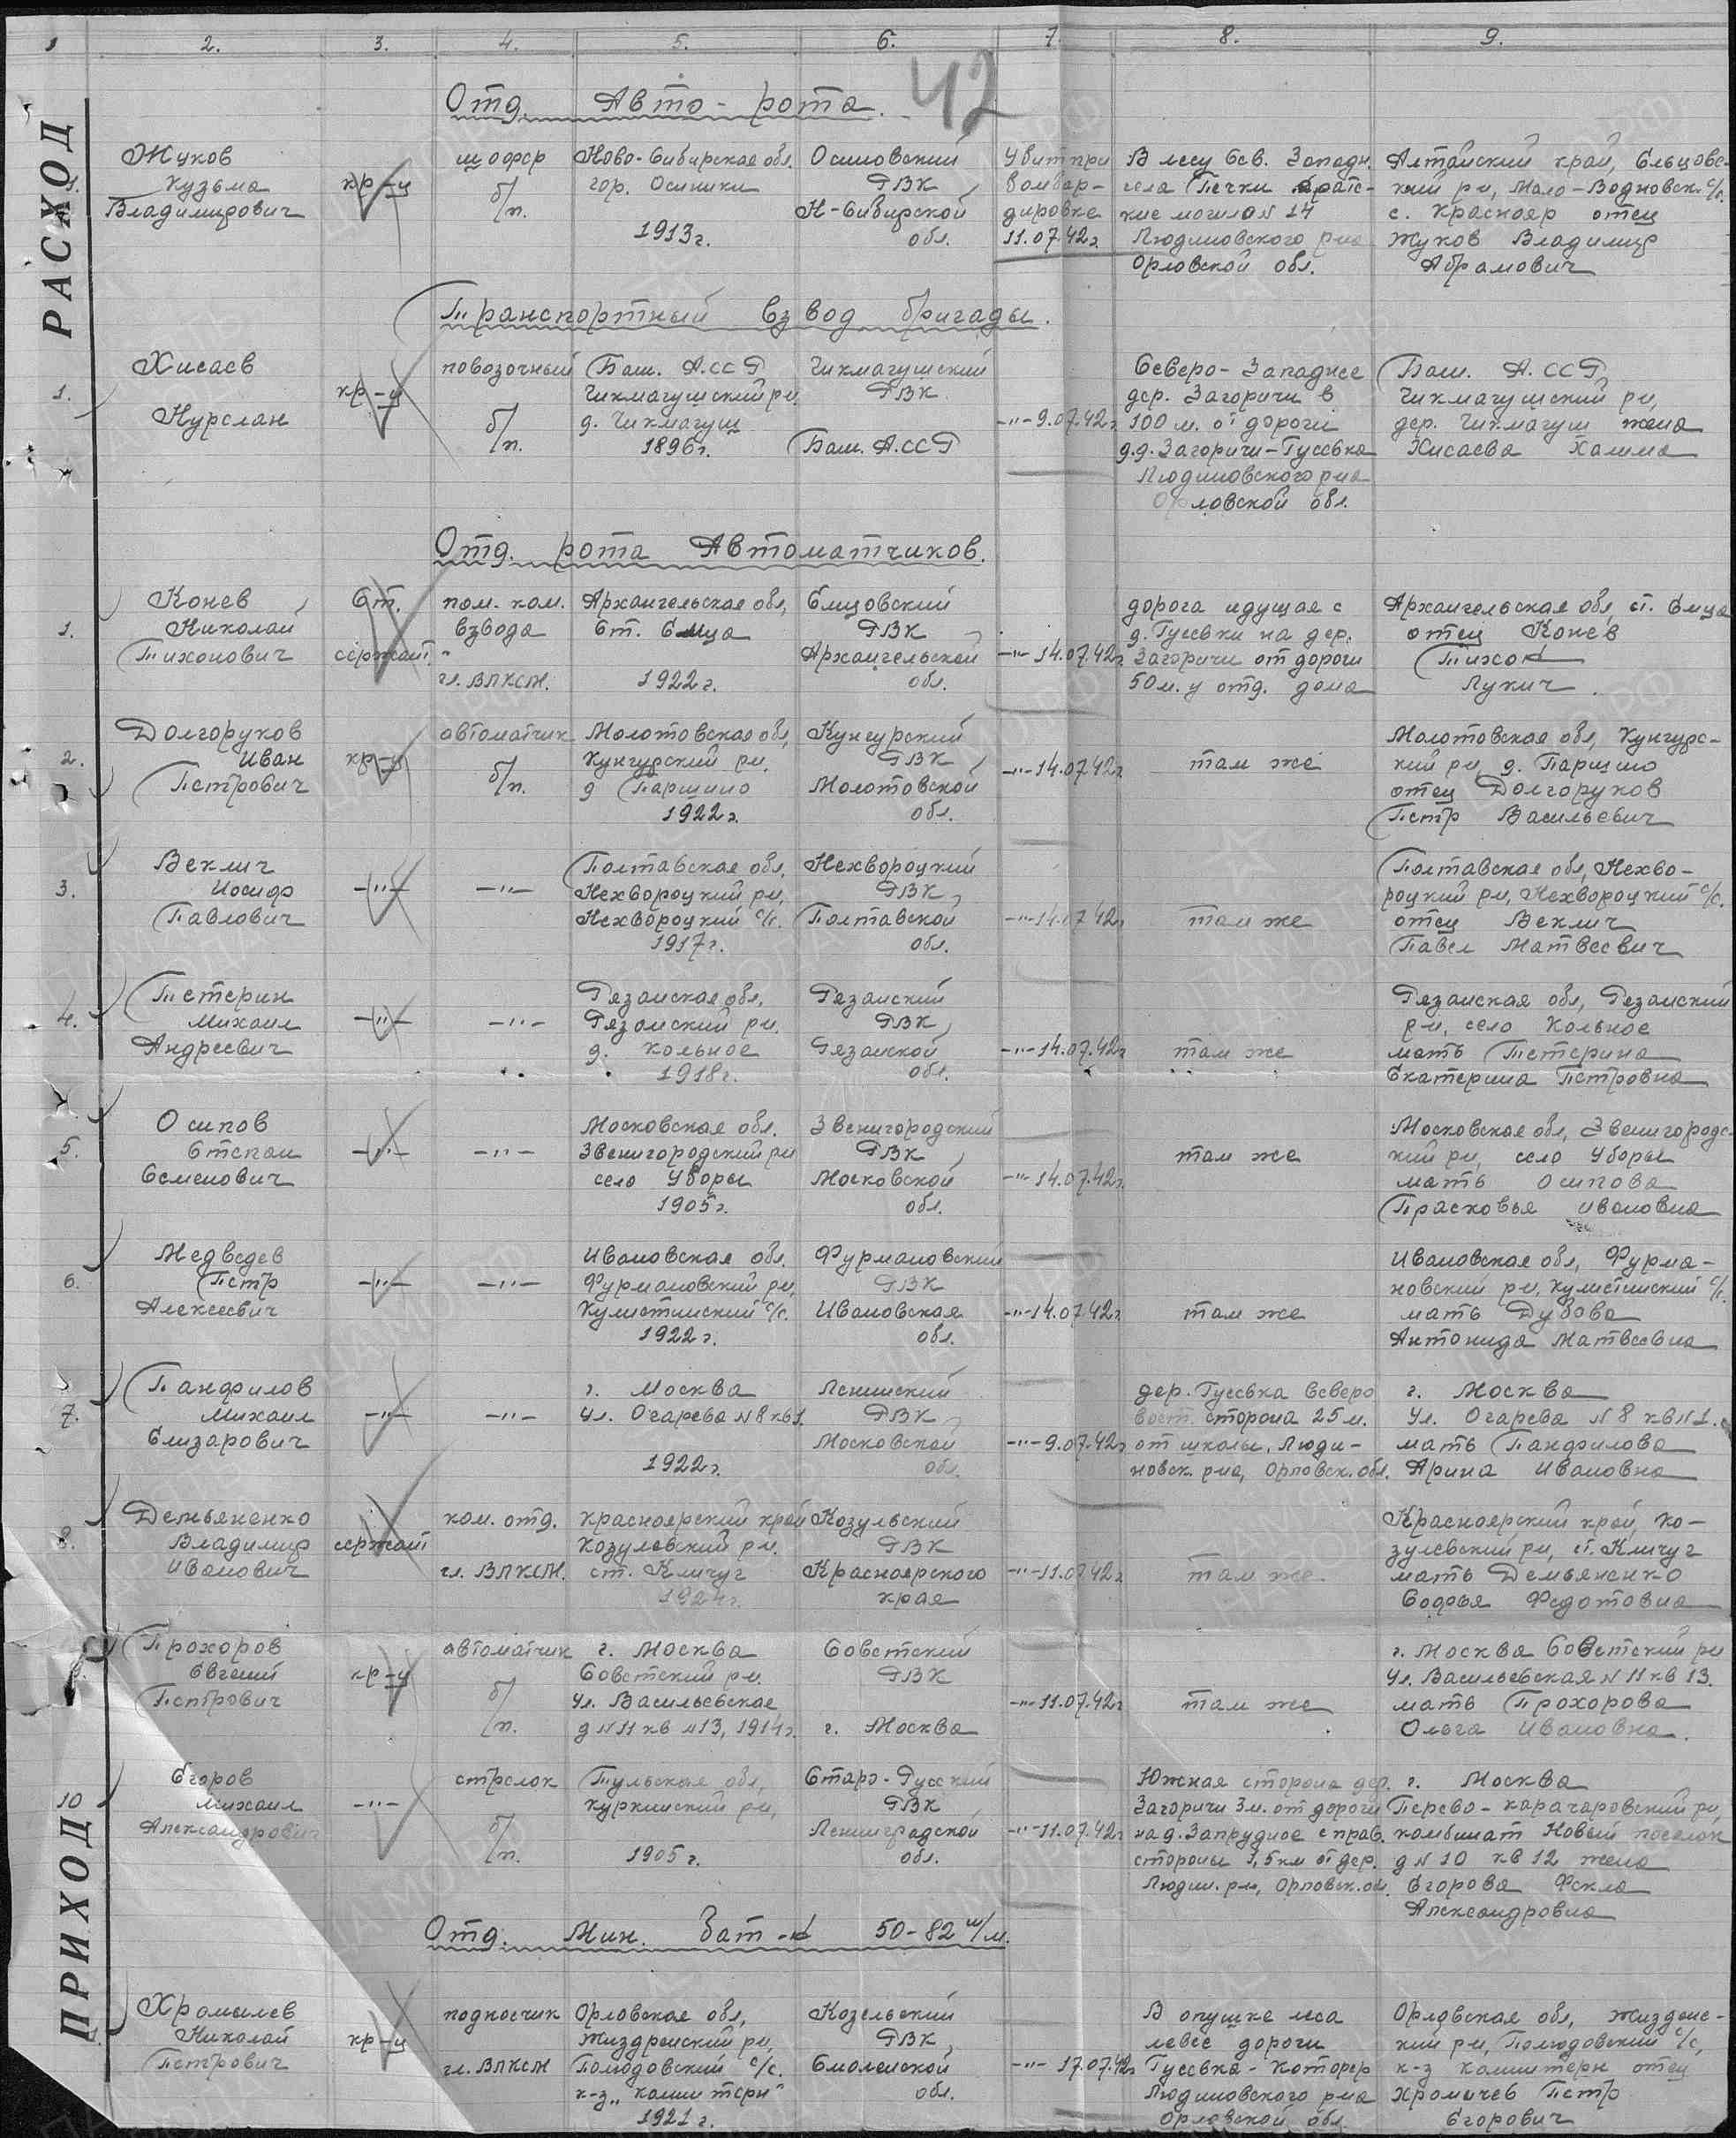 1 2. 3. 4. 5. 6. 7. 8. 9.
42
РАСХОД
Отд. Авто-рота.
1.
Жуков
Кузьма
Владимирович
кр-ц
шофер
б/п.
Ново-Сибирская обл.
гор. Осиники
1913г.
Осиновский
РВК,
Н-Сибирской
обл.
Убит при
бомбар-
дировке
11.07.42г.
В лесу Сев. Западн.
села Печки братс-
кие могила N 14
Людиновского р-на
Орловской обл.
Алтайский край, Ельцовс-
кий р-н, Мало- с/с.
с. Краснояр отец
Жуков Владимир
Абрамович
Транспортный взвод бригады.
1.
Хисаев
Нурслан
кр-ц
повозочный
б/п.
Баш. А.ССР
Чикмагушский р-н,
д. Чикмагуш
1896г.
Чикмагушский
РВК
Баш. А.ССР
-"- 9.07.42г.
Северо-Западнее
дер. Загоричи в
100 м. от дороги
д.д. Загоричи-Гусевка
Людиновского р-на
Орловской обл.
Баш. А.ССР
Чикмагушский р-н,
дер. Чикмагуш жена
Хисаева Халима
Отд. рота Автоматчиков.
1.
Конев
Николай
Тихонович
Ст.
сержант
пом. ком.
взвода
чл. ВЛКСМ.
Архангельская обл,
Ст. Емца
1922г.
Емцовский
РВК,
Архангельской
обл.
-"- 14.07.42г.
дорога идущая с
д. Гусевки на дер.
Загоричи от дороги
50м. у отд. дома
Архангельская обл, ст. Емца
отец Конев
Тихон
Лукич.
2.
Долгоруков
Иван
Петрович
кр-ц
автоматчик
б/п.
Молотовская обл,
Кунгурский р-н,
д Паршино
1922г.
Кунгурский
РВК,
Молотовской
обл.
-"- 14.07.42г.
там же
Молотовская обл, Кунгурс-
кий р-н, д. Паршино
отец Долгоруков
Петр Васильевич
3.
Веклич
Иосиф
Павлович
-"-
-"-
Полтавская обл,
Нехвороцкий р-н,
Нехвороцкий с/с.
1917г.
Нехвороцкий
РВК,
Полтавской
обл.
-"- 14.07.42г.
там же
Полтавская обл, Нехво-
роцкий р-н, Нехвороцкий с/с.
отец Веклич
Павел Матвеевич
4.
Тетерин
Михаил
Андреевич
-"-
-"-
Рязанская обл,
Рязанский р-н.
д. Кольное
1918г.
Рязанский
РВК,
Рязанской
обл.
-"- 14.07.42г.
там же
Рязанская обл, Рязанский
р-н, село Кольное
мать Тетерина
Екатерина Петровна
5.
Осипов
Степан
Семенович
-"-
-"-
Московская обл.
Звенигородский р-н
село Уборы
1905г.
Звенигородский
РВК,
Московской
обл.
-"- 14.07.42г.
там же
Московская обл, Звенигородс-
кий р-н, село Уборы
мать Осипова
Прасковья Ивановна
6.
Медведев
Петр
Алексеевич
-"-
-"-
Ивановская обл.
Фурмановский р-н,
с/с.
1922г.
Фурмановский
РВК
Ивановская
обл.
-"- 14.07.42г.
там же
Ивановская обл, Фурма-
новский р-н, с/с.
мать Дубова
Антонида Матвеевна
7.
Панфилов
Михаил
Елизарович
-"-
-"-
г. Москва
Ул. Огарева N8 кв 1.
1922г.
Ленинский
РВК,
Московской
обл.
-"- 9.07.42г.
дер. Гусевка Северо
вост. сторона 25м.
от школы, Люди-
новск. р-на, Орловск. обл.
г. Москва
Ул. Огарева N8 кв N1.
мать Панфилова
Арина Ивановна
8.
Демьяненко
Владимир
Иванович
сержант
ком. отд.
чл. ВЛКСМ.
Красноярский край
Козулевский р-н.
ст. Кличуг
1924г.
Козульский
РВК
Красноярского
края
-"- 11.07.42г.
там же.
Красноярский край, Ко-
зулевский р-н, ст. Кличуг
мать Демьяненко
Софья Федотовна
Прохоров
Евгений
Петрович
кр-ц
автоматчик
б/п.
г. Москва
Советский р-н.
Ул. Васильевская
д N 11 кв N13, 1914г.
Советский
РВК
г. Москва
-"- 11.07.42г.
там же
г. Москва Советский р-н
Ул. Васильевская N 11 кв 13.
мать Прохорова
Ольга Ивановна.
10
Егоров
Михаил
Александрович
-"-
стрелок
б/п.
Тульская обл,
Куркинский р-н,
1905г.
Старо-Русский
РВК
Ленинградской
обл.
-"- 11.07.42г.
Южная сторона дер.
Загоричи 3м. от дороги
на д. Запрудное с прав.
стороны 1,5км от дер.
Людин. р-н, Орловск. обл.
г. Москва
Перово-Карачаровский р-н,
комбинат Новый поселок
д N 10 кв 12 жена
Егорова Фекла
Александровна
ПРИХОД
Отд. Мин. Бат-н 50-82 м/м.
Хромылев
Николай
Петрович
кр-ц
подносчик
чл. ВЛКСМ
Орловская обл,
Жиздренский р-н,
Полюдовский с/с.
к-з "Коминтерн"
1921г.
Козельский
РВК,
Смоленской
обл.
-"- 17.07.42г.
В опушке леса
левее дороги
Гусевка-Которер
Людиновского р-на
Орловской обл.
Орловская обл, Жизденс-
кий р-н, Полюдовский с/с,
к-з Коминтерн отец
Хромичев Петр
Егорович